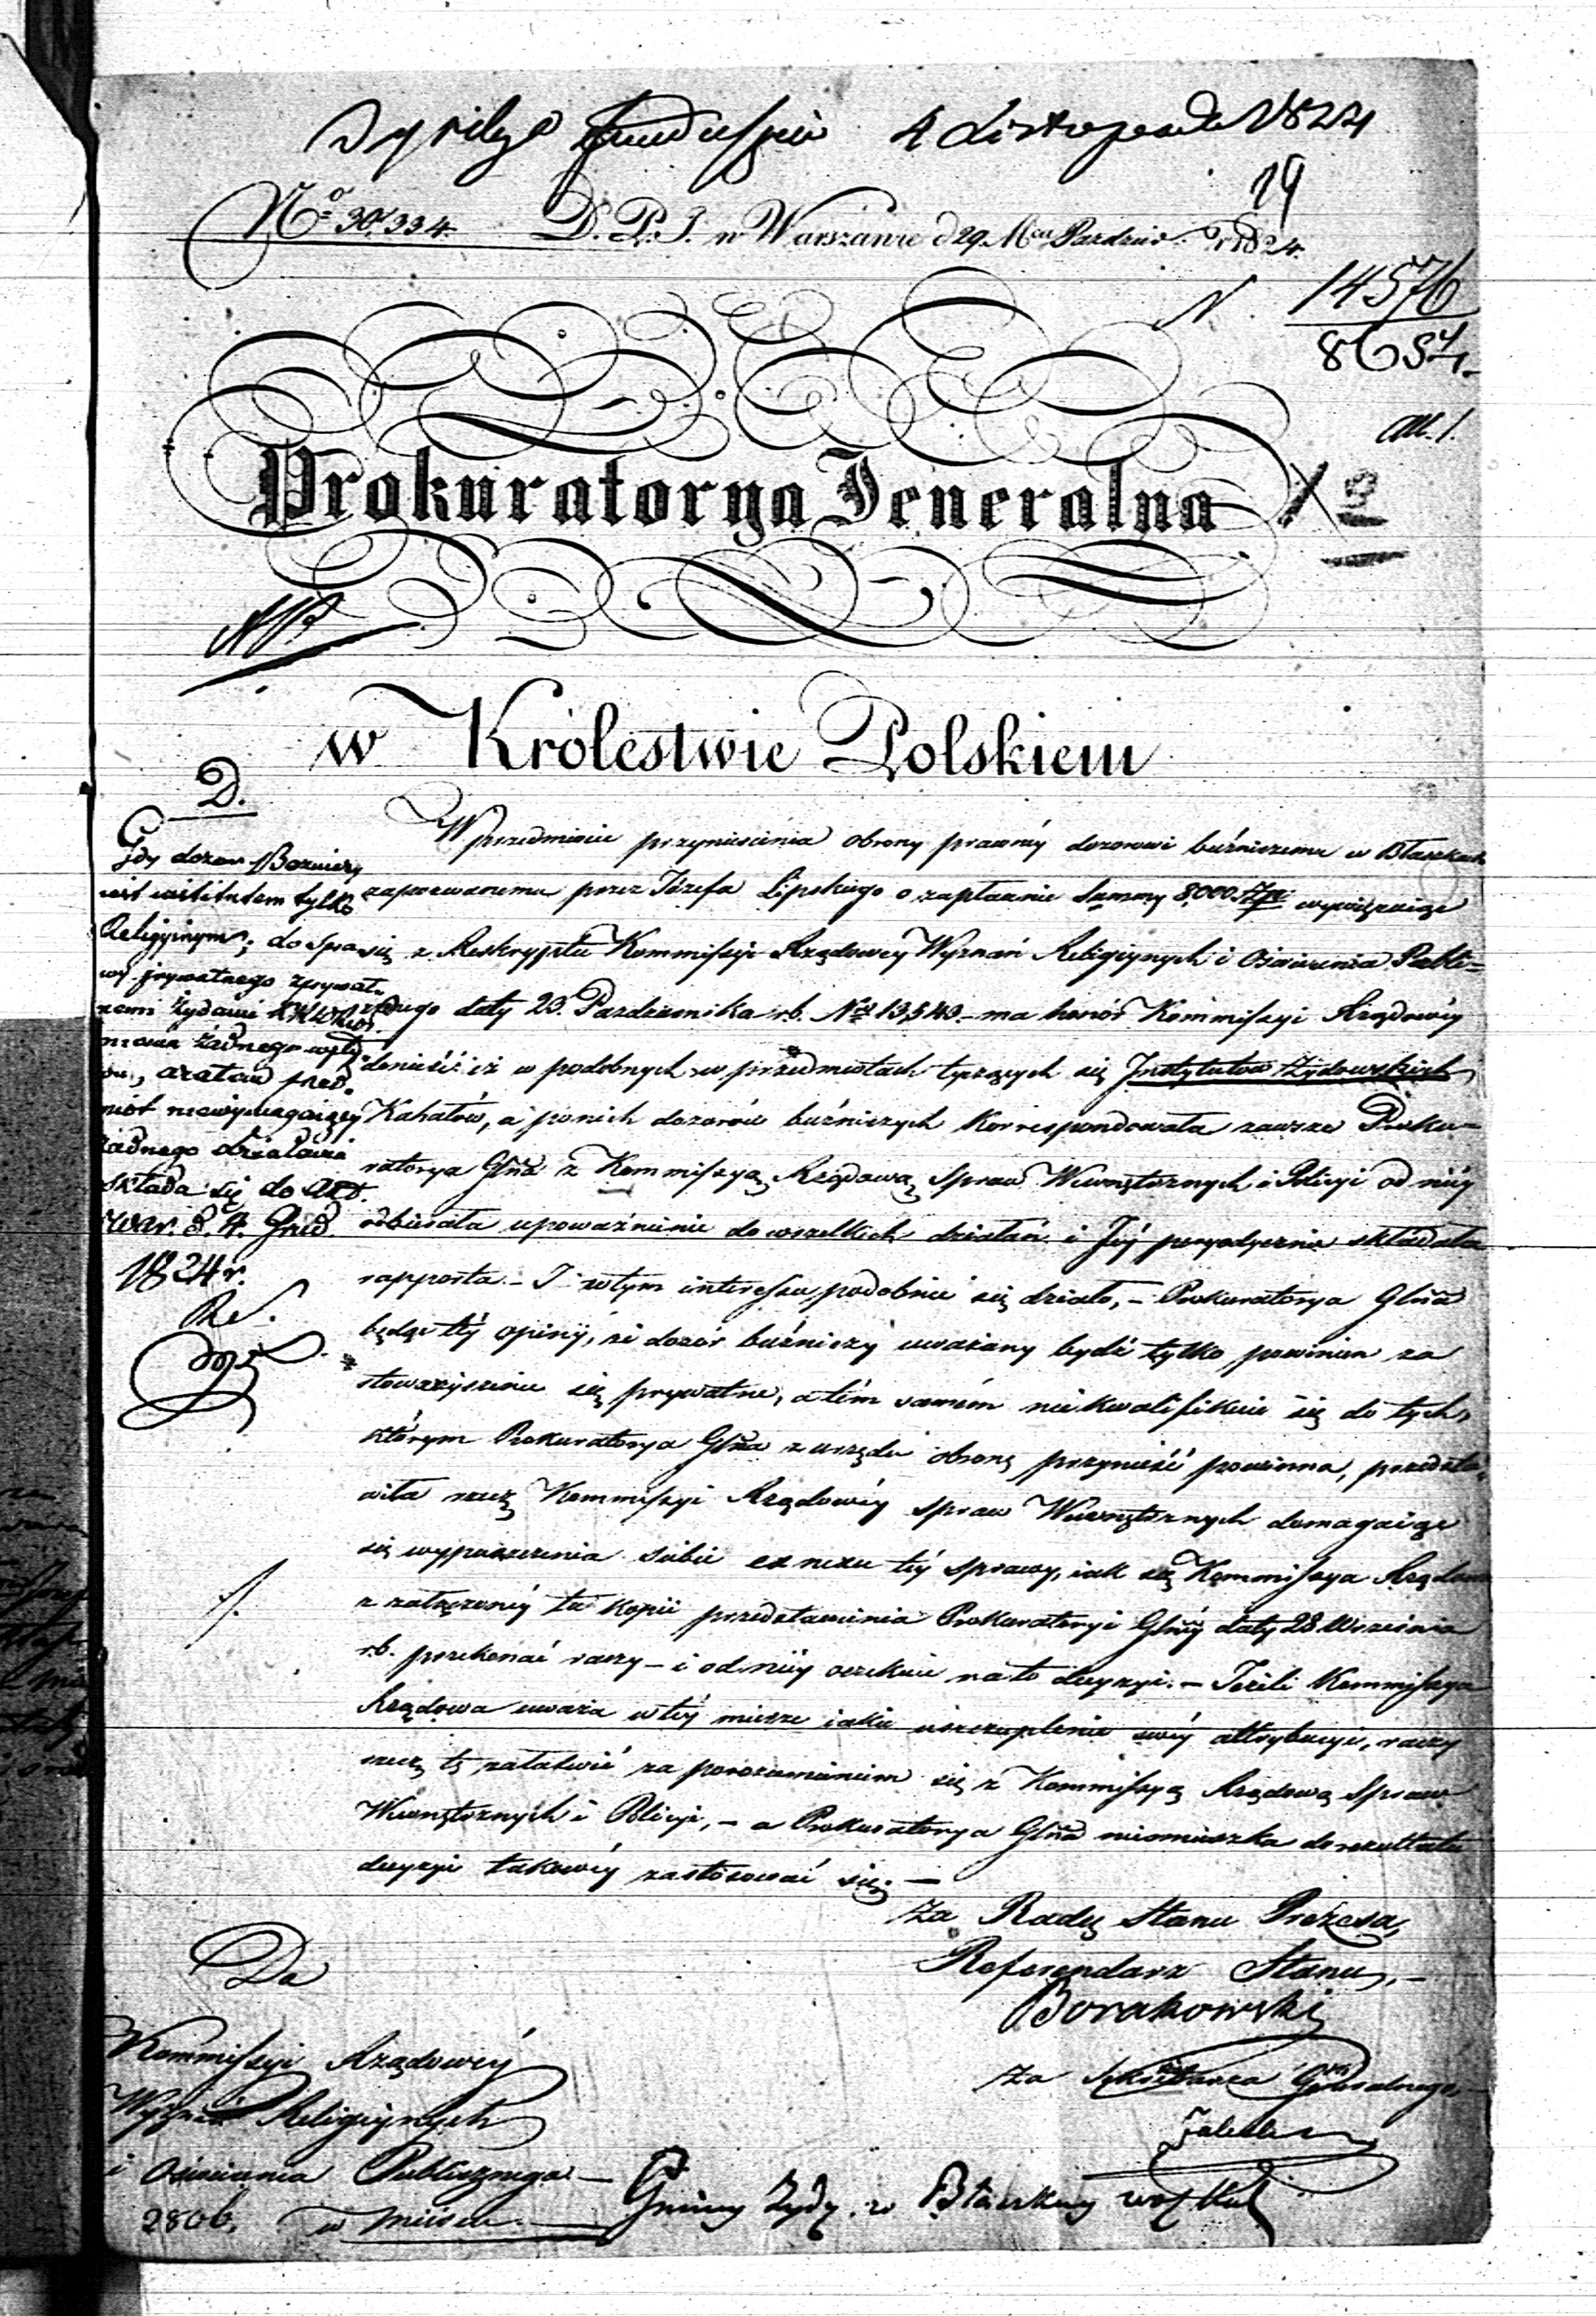 4 Listopada 1824
19
No 30,334. D. P. J. w Warszawie d 29 Mca Pazdzier. 1824.
N. 14576
8654
All. 1.
Prokuratorya Jeneralna
w Królestwie Polskiem
D.
Gdy dozor Bozniczy
iest institutem tylko
Religijnym; do spra
wy prywatnego z prywat
nemi Żydami
niema żadnego wpły
wu, a zatem przed
miot niewymagaiący
żadnego działania
składa się do Akt.
War. d. 4. Grud.
1824 r.
W przedmiocie przyniesienia obrony prawnéy dozorowi bużniczemu w Błaszkach
zapozwanemu przez Józefa Lipskiego o zapłacenie Summy 8,000 Złp. wywiązuiąc
się z Reskryptu Kommissyi Rządowey Wyznań Religiynych i Oświecenia Publi=
cznego daty 23. Pazdziernika r.b. No 13,543. – ma honor Kommissyi Rządowéy
donieść: iż w podobnych w przedmiotach tyczących się Instytutów Żydowskich
Kahałów, a po nich dozorów bużniczych korrespondowała zawsze Proku=
ratorya Glna z Kommissyą Rządową Spraw Wewnętrznych i Policyi od niéy
odbierała upoważnienie do wszelkich działań i Jéy peryodycznie składała
rapporta. – I w tym interessu podobnie się działo, – Prokuratorya Glna
będąc téy opinii, że dozór bużniczy uważany bydź tylko powinien za
stowarzyszenie się prywatne, a tém samém niekwalifikuie się do tych,
którym Prokuratorya Glna z urzędu obronę przynieść powinna, przedsta=
wiła rzecz Kommissyi Rządowéy Spraw Wewnętrznych domagaiąc
się wypuszczenia siebie ex nexu téy sprawy, iak się Kommissya Rządowa
z załączonéy tu kopii przedstawienia Prokuratoryi Glnéy daty 28 Września
r.b. przekonać raczy – i od niéy oczekuie na to decyzyi. – Jeżeli Kommissya
Rządowa uważa w téy mierze iakie uszczuplenie swéy attrybucyi, raczy
rzecz tę załatwić za porozumieniem się z Kommissyą Rządową Spraw
Wewnętrznych i Policyi, – a Prokuratorya Glna niemieszka do rezultatu
decyzyi takowéy zastosować się. –
Za Radcę Stanu Prezesa,
Referendarz Stanu, –
Borakowski
Za Sekretarza Generalnego
Do
Kommissyi Rządowéy
Wyznań Religiynych
i Oświecenia Publicznego –
2806. w Mieście. –
Gminy Żydz. w Błaszkach